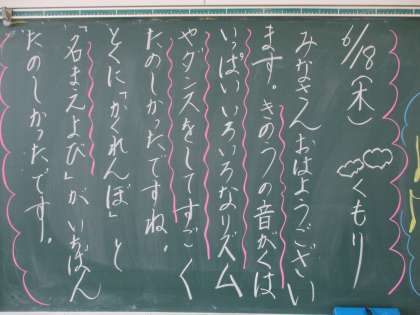 6/18(木) くもり
みなさんおはようござい
ます。きのうの音がくは
いっぱいいろいろなリズム
やダンスをしてすごく
たのしかったですね。
とくに「かくれんぼ」と
「名まえよび」がいちばん
たのしかったです。